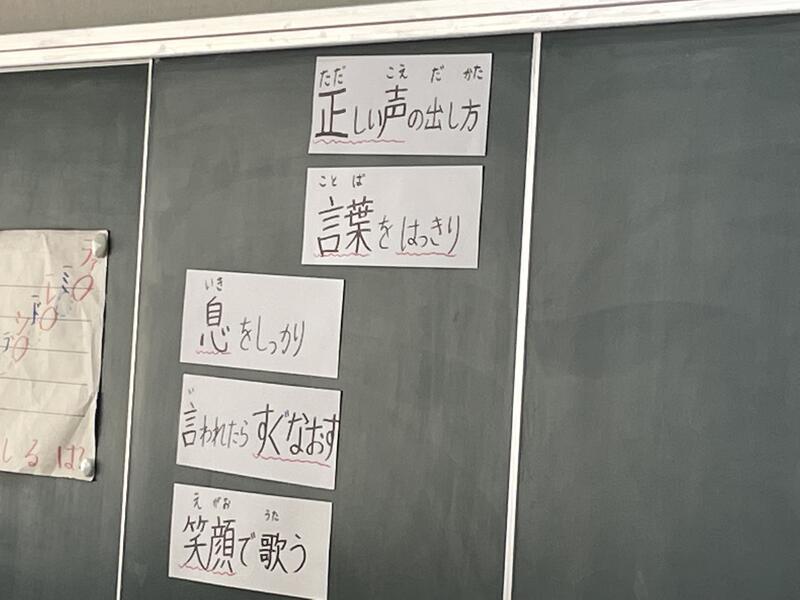 ただ こえ だ かた
正しい声の出し方
ことば
言葉をはっきり
いき
息をしっかり
い
言われたらすぐなおす
えがお うた
笑顔で歌う
ファ
ミ
レ
ド
シ
ラ
しるは